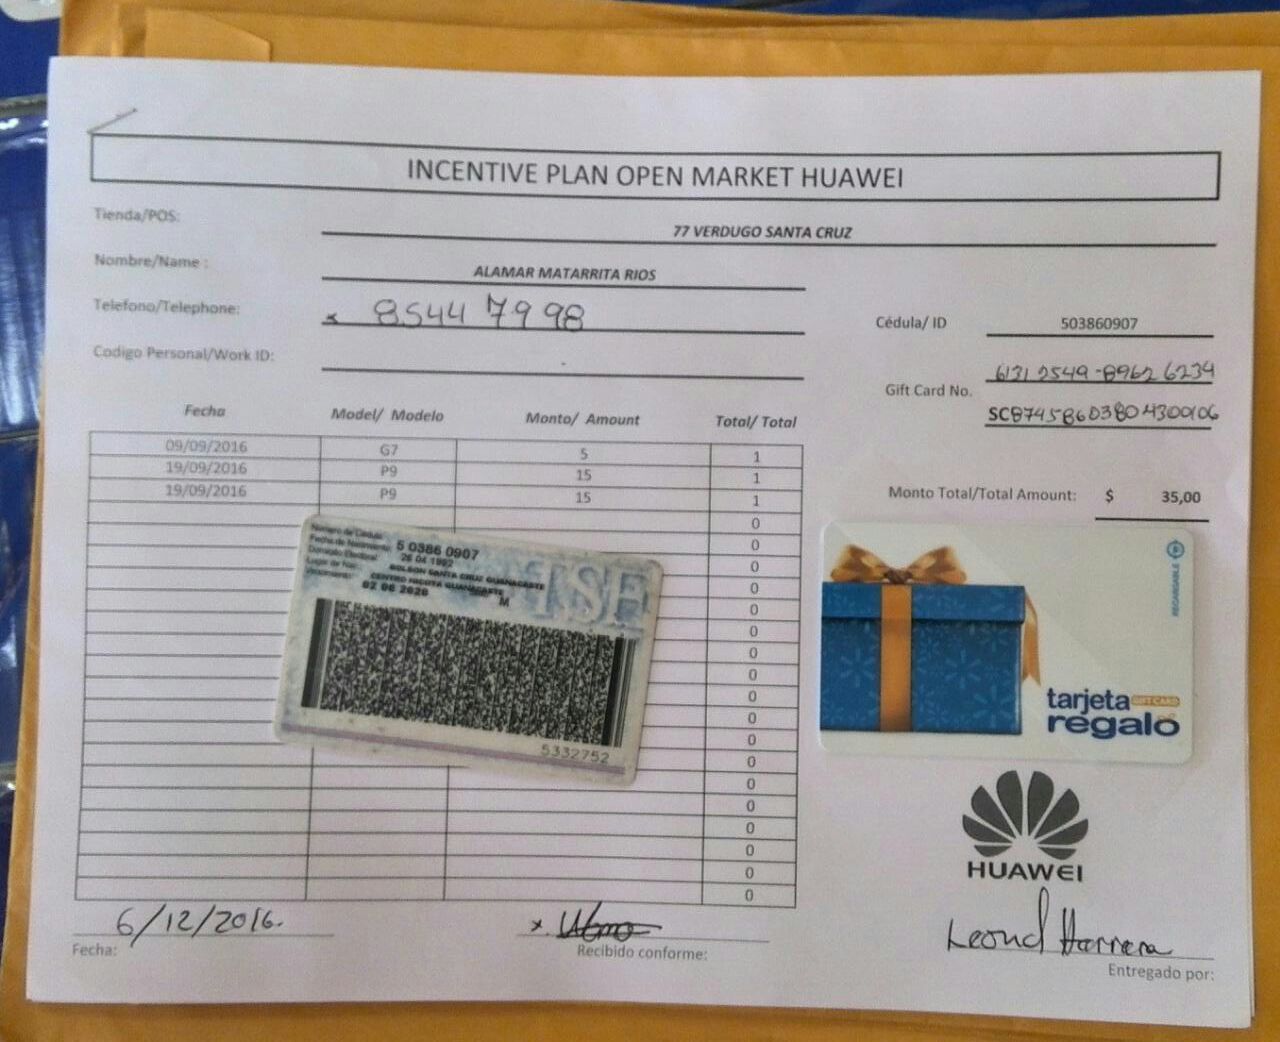 INCENTIVE PLAN OPEN MARKET HUAWEI
Tienda/POS: 77 VERDUGO SANTA CRUZ
Nombre/Name : ALAMAR MATARRITA RIOS
Telefono/Telephone: x 8544 7998
Cédula/ ID 503860907
Codigo Personal/Work ID:
Gift Card No. 6131 2549-8962 6234
SC87458603804300106
Fecha Model/ Modelo Monto/ Amount Total/ Total
09/09/2016 G7 5 1
19/09/2016 P9 15 1
19/09/2016 P9 15 1
Monto Total/Total Amount: $ 35,00
0
0
0
0
0
0
0
0
0
0
0
0
0
0
0
0
0
0
Número de Cédula: 5 0386 0907
Fecha de Nacimiento: 26 04 1992
Domicilio Electoral: BOLSON SANTA CRUZ GUANACASTE
CENTRO NICOYA GUANACASTE
02 06 2026 M
TSE
5332752
RECARGABLE
tarjeta GIFT CARD
regalo
HUAWEI
6/12/2016.
Fecha:
x.
Recibido conforme:
Leonel Herrera
Entregado por: